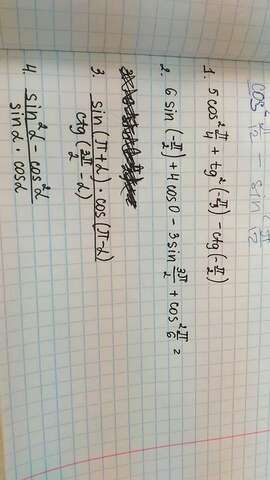 1. 5cos² π/4 + tg²(-π/3) - ctg(-π/2)
2. 6 sin(-π/2) + 4cos0 - 3sin 3π/2 + cos² π/6 =
3. sin(π+α) · cos(π-α)
ctg(3π/2 - α)
4. sin²α - cos²α
sinα · cosα